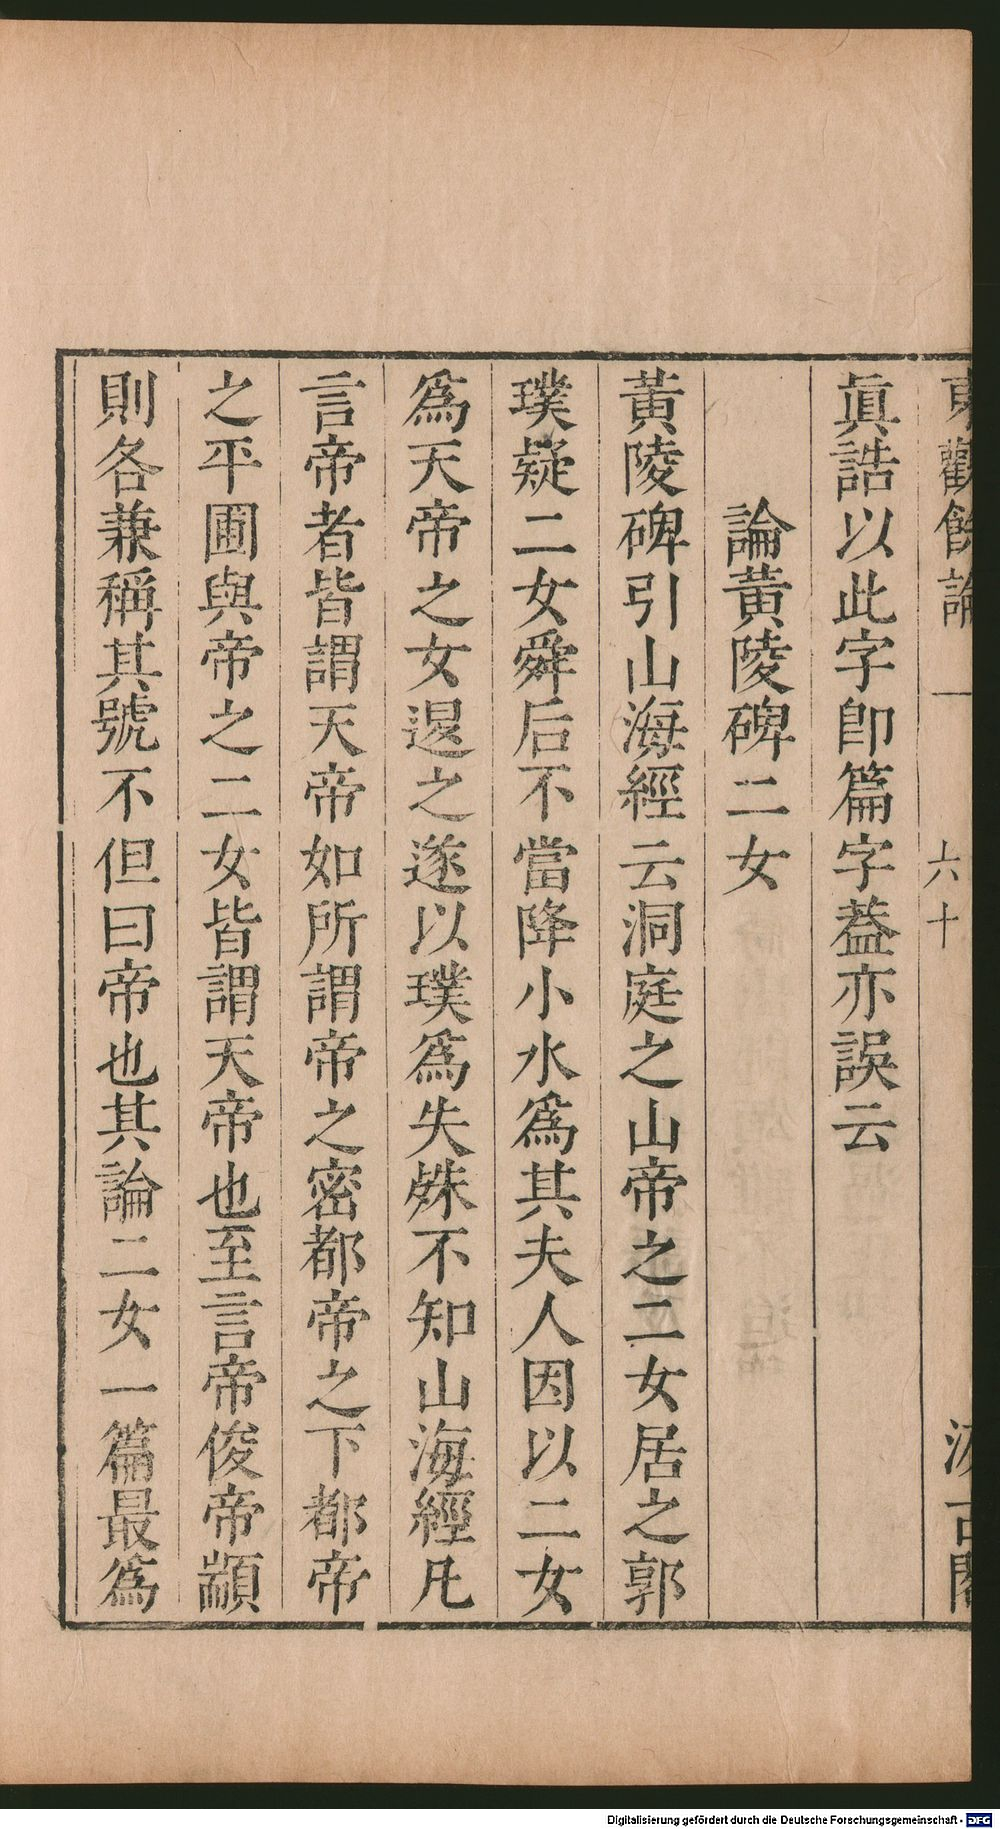 東觀餘論 一 六十 汲古閣
眞誥以此字即篇字葢亦誤云
論黃陵碑二女
黃陵碑引山海經云洞庭之山帝之二女居之郭
璞疑二女舜后不當降小水爲其夫人因以二女
爲天帝之女退之遂以璞爲失殊不知山海經凡
言帝者皆謂天帝如所謂帝之密都帝之下都帝
之平圃與帝之二女皆謂天帝也至言帝俊帝顓
則各兼稱其號不但曰帝也其論二女一篇最爲
Digitalisierung gefördert durch die Deutsche Forschungsgemeinschaft - DFG